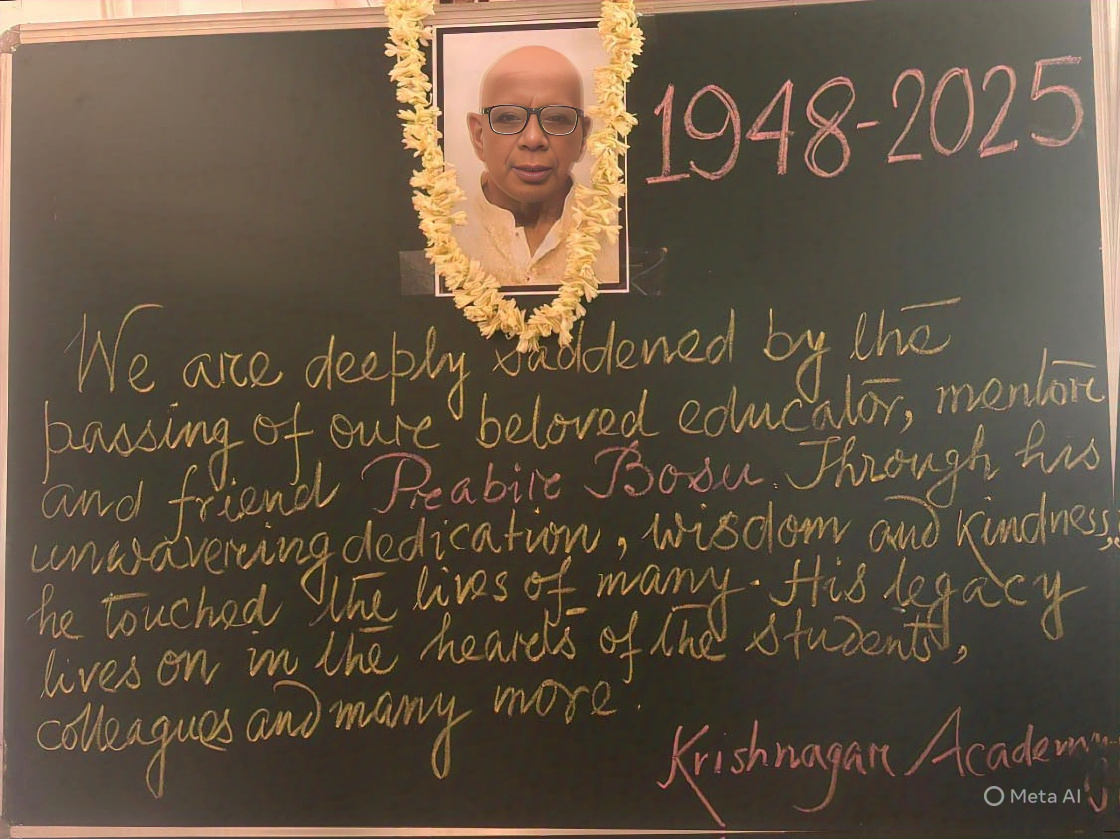 1948-2025
We are deeply saddened by the
passing of our beloved educator, mentor
and friend Prabir Bosu. Through his
unwavering dedication, wisdom and kindness,
he touched the lives of many. His legacy
lives on in the hearts of the students,
colleagues and many more.
Krishnagar Academy
Meta AI